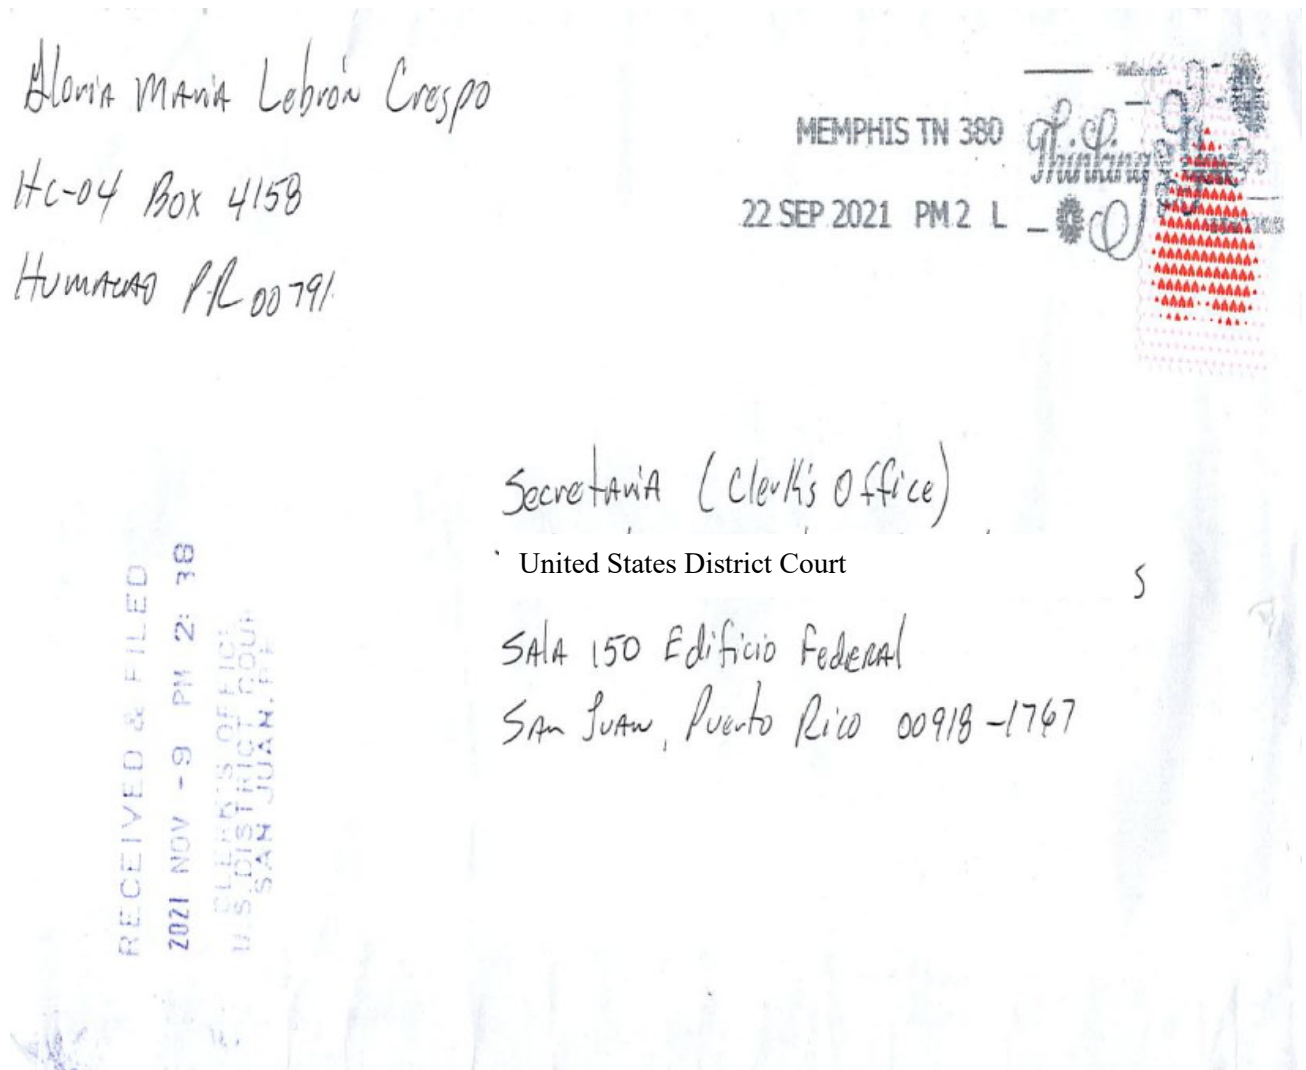 Gloria Maria Lebrón Crespo
HC-04 Box 4158
Humacao PR 00791
MEMPHIS TN 380
22 SEP 2021 PM 2 L
Thinking of You
Secretaria (Clerk's Office)
United States District Court
s
Sala 150 Edificio Federal
San Juan, Puerto Rico 00918-1767
RECEIVED & FILED
2021 NOV -9 PM 2: 38
CLERK'S OFFIC
U.S. DISTRICT COUR
SAN JUAN, P.R